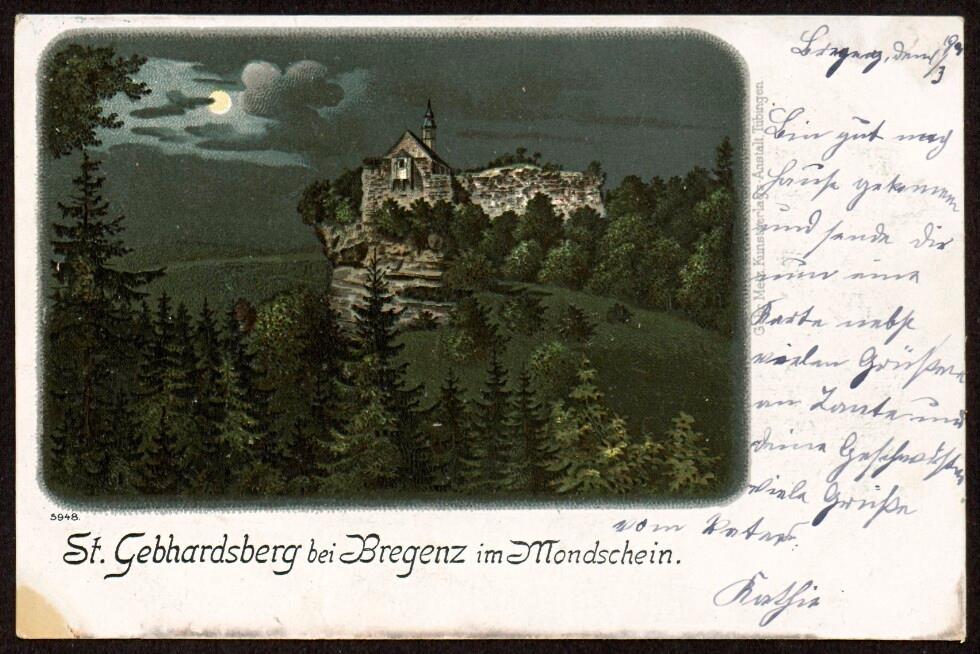 Bregenz, den
Bin gut nach
Hause gekommen
und sende dir
nun eine
Karte nebst
vielen Grüßen
an Tante und
deine Geschwister
viele Grüße
vom
Kathie
Kunstverlags-Anstalt Tübingen
5948.
St. Gebhardsberg bei Bregenz im Mondschein.